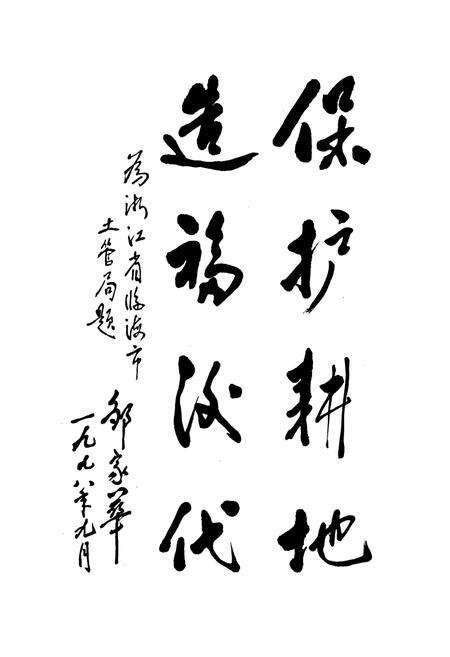 保护耕地
造福后代
为浙江省临海市
土管局题
邹家华
一九九八年九月